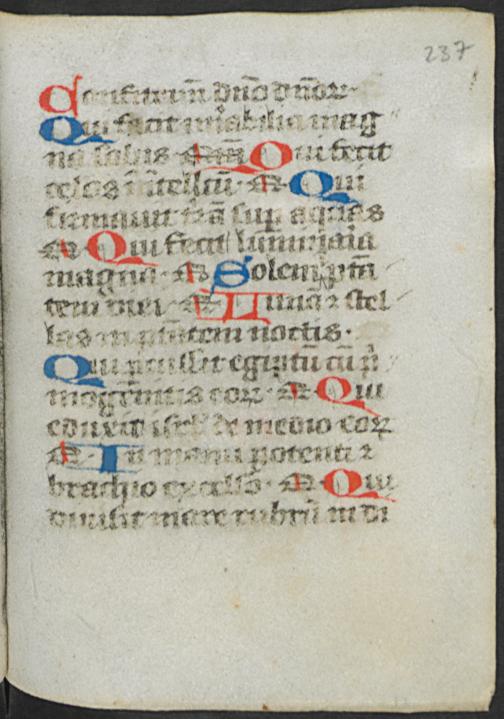 237
Confitemini dño dñoꝝ
Qui facit mirabilia mag
na solus Qui fecit
celos ĩtellcũ Qui
firmauit trã suꝑ aquas
Qui fecit luminaria
magna Solem ptã
tem diei Luna ⁊ stel
las in ptãtem noctis.
Qui ꝑcussit egiptũ cũ
mogenitis eoꝝ Qui
eduxit isrl de medio eoꝝ
In manu potenti ⁊
brachio excelso Qui
diuisit mare rubrũ in di